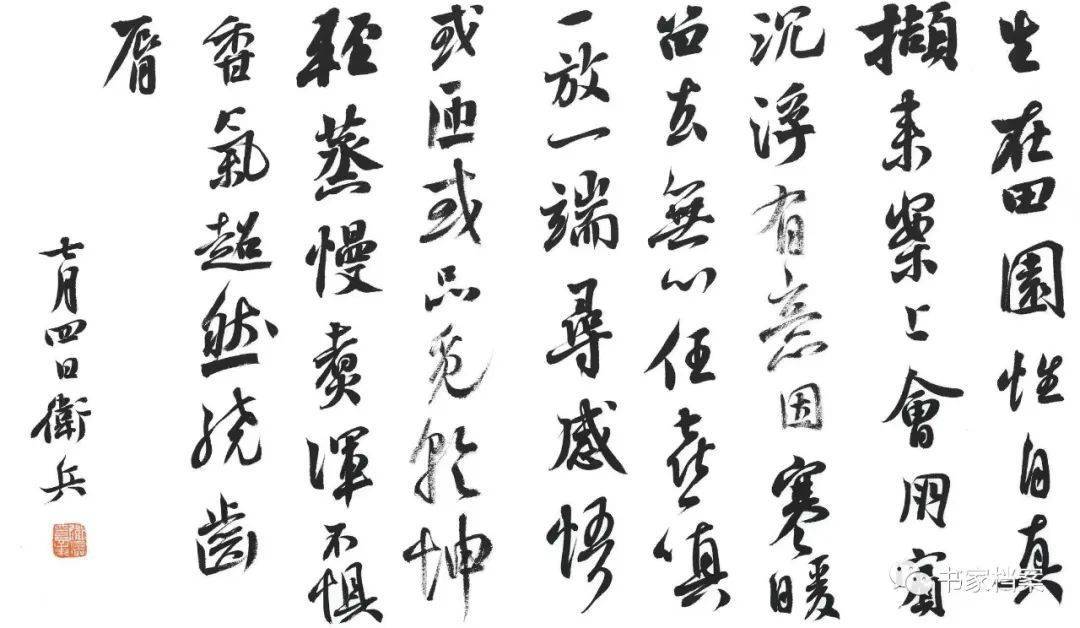 生在田園性自真
擷来案上會朋賓
沉浮有意因寒暖
留去無心任喜嗔
一放一端尋感悟
或匝或品觅乾坤
輕蒸慢煮渾不懼
香氣超然绕齿
脣
七月四日衛兵
书家档案